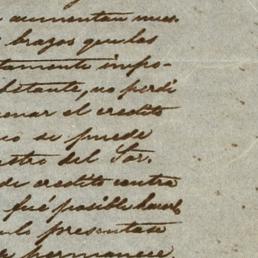 aumentan nues-
brazos que las
tamente impo-
bstante, no perdi
enar el credito
no se puede
ntro del Sor.
de credito contra
fué posible hacerlo
lo presentase
permanece